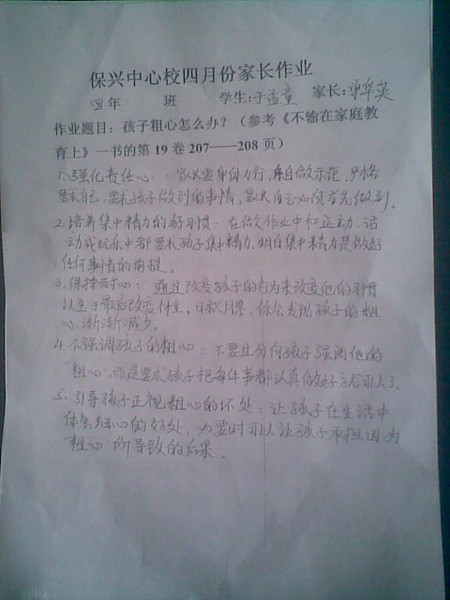 保兴中心校四月份家长作业
四年 班 学生:于孟童 家长:单牟英
作业题目:孩子粗心怎么办?(参考《不输在家庭教
育上》一书的第19卷207——208页)
1、强化责任心:家长要身体力行,亲自做示范,严格
要求自己,要求孩子做到的事情,家长自己必须首先做到。
2、培养集中精力的好习惯:在做作业中和运动、活
动或玩乐中都要求孩子集中精力,明白集中精力是做好
任何事情的前提。
3、保持耐心:通过改变孩子的行为来改变他的习惯
以至于最后改变个性。日积月累,你会发现孩子的粗
心渐渐减少。
4、不强调孩子的粗心:不要过分向孩子强调他的
"粗心",而是要求孩子把每件事都认真做好就可以了。
5、引导孩子正视粗心的坏处:让孩子在生活中
体会细心的好处,必要时可以让孩子承担因为
"粗心"所导致的后果。